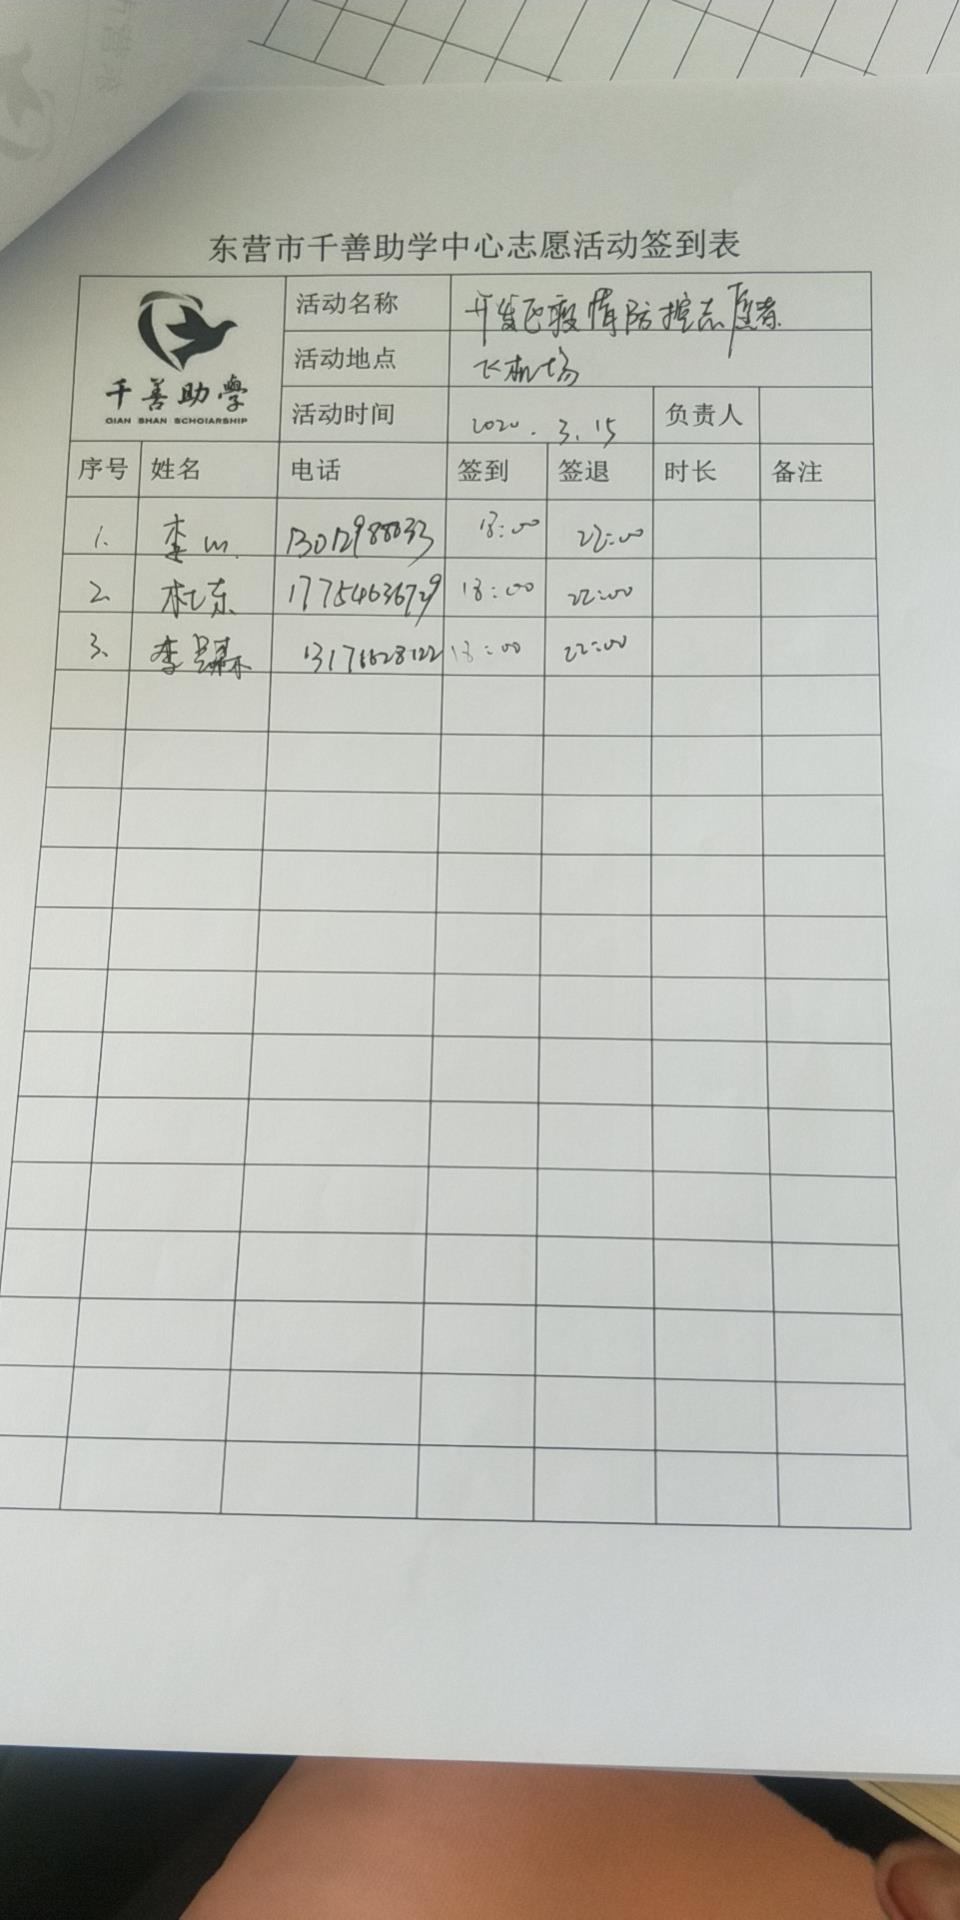 东营市千善助学中心志愿活动签到表
千善助學
QIAN SHAN SCHOIARSHIP
活动名称 开发区疫情防控志愿者
活动地点 飞机场
活动时间 2020.3.15 负责人
序号 姓名 电话 签到 签退 时长 备注
1. 李山 13012988033 18:00 22:00
2. 杜东 17754636729 18:00 22:00
3. 李 13176628122 18:00 22:00